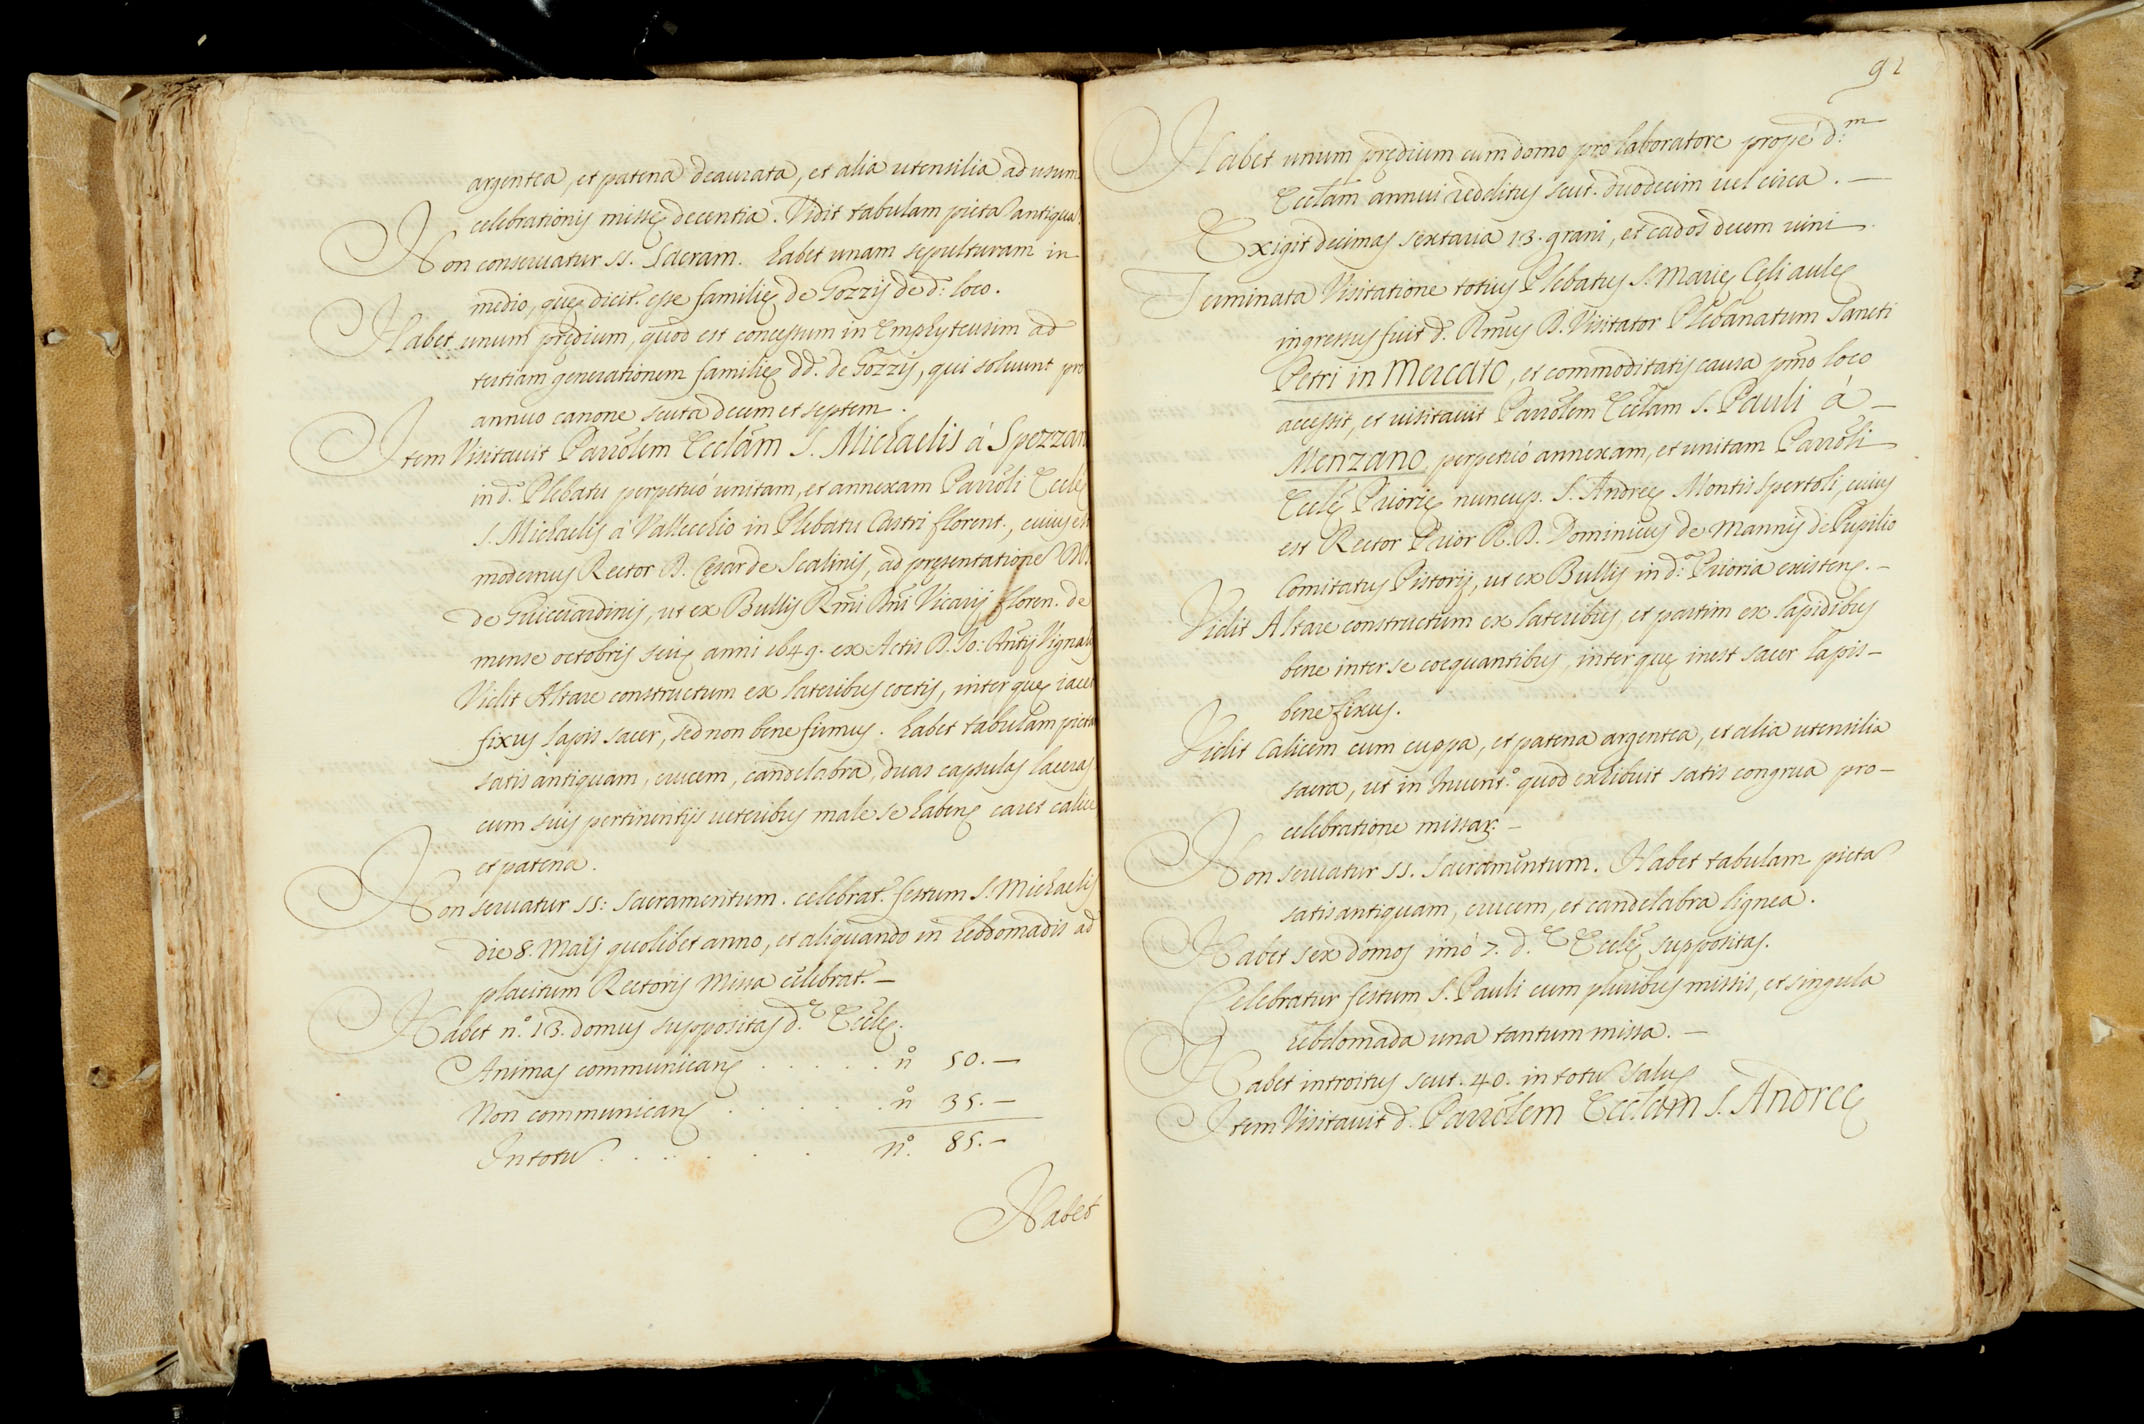 argentea, et patena deaurata, et alia utensilia ad usum
celebrationis missę decentia. Vidit tabulam picta antiqua
Non conservatur SS. Sacram. habet unam sepulturam in
medio, quę dicit. esse familię de Gozzijs de d.° loco.
Habet unum prędium, quod est concessum in Emphyteusim ad
tertiam generationem familię DD. de Gozzis, qui solvunt pro
annuo canone scuta decem et septem.
Item Visitavit Parrolem Ecclam S. Michaelis à Spezzan
in d.° Plebatu perpetuó unitam, et annexam Parroli Eccle
S. Michaelis à Vallecchio in Plebatu Castri florent., cuius est
modernus Rector D. Cęsar de Scalinis, ad pręsentatione DD.
de Guicciardinis, ut ex Bullis Rmi Dni Vicarij floren. de
mense octobris seu anni 1649. ex Actis D. Io: Antij Vignali
Vidit Altare constructum ex lateribus coctis, inter quę iacet
fixus lapis sacer, sed non bene firmus. habet tabulam picta
satis antiquam, crucem, candelabra, duas capsulas laceras
cum suis pertinentijs veteribus male se habens caret calice
et patena.
Non servatur SS: Sacramentum. celebrat. festum S. Michaelis
die 8. Maij quolibet anno, et aliquando in hebdomadis ad
placitum Rectoris Missa celebrat. —
Habet n.° 13. domus suppositas d.ę Eccle.
Animas communicans . . . . . n° 50. —
Non communicans . . . . . n° 35. —
In totu . . . . . . n.° 85. —
Habet
91
Habet unum prędium cum domo pro laboratore propè d.m
Ecclam annui redditus scut. duodecim vel circa. —
Exigit decimas sextaria 13. grani, et cados decem vini
Terminata Visitatione totius Plebatus S. Marię Cęli aulę
ingressus fuit d. Rmus D. Visitator Plebanatum Sancti
Petri in Mercato, et commoditatis causa pmo loco
accessit, et visitavit Parrolem Ecclam S. Pauli à —
Menzano, perpetuó annexam, et unitam Parroli
Eccle Priorię nuncup. S. Andreę Montis Spertoli, cuius
est Rector Prior R. D. Dominicus de Mannis de Pupilio
Comitatus Pistorij, ut ex Bullis in d.ª Prioria existens. —
Vidit Altare constructum ex lateribus, et partim ex lapidibus
bene inter se coequantibus, inter quę inest sacer lapis —
bene fixus.
Vidit Calicem cum cuppa, et patena argentea, et alia utensilia
sacra, ut in Invent.° quod exhibuit satis congrua pro —
celebratione missar. —
Non servatur SS. Sacramentum. Habet tabulam picta
satis antiquam, crucem, et candelabra lignea.
Habet sex domos imò 7. d.ę Eccle suppositas.
Celebratur festum S. Pauli cum pluribus missis, et singula
hebdomada una tantum missa. —
Habet introitus scut. 40. in totu Salus
Item Visitavit d. Parrolem Ecclam S. Andreę